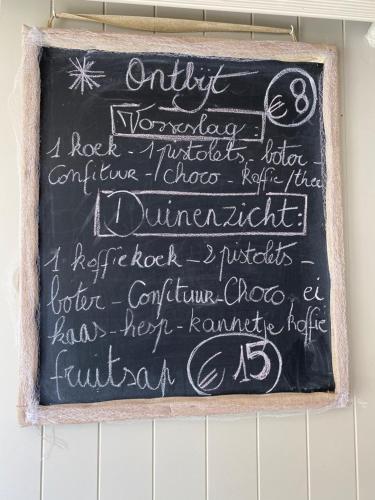 * Ontbijt €8
Vosseslag:
1 koek - 1 pistolets - boter -
Confituur - / choco - koffie / thee
Duinenzicht:
1 koffiekoek - 2 pistolets -
boter - Confituur - Choco - ei
kaas - hesp - kannetje koffie
fruitsap €15